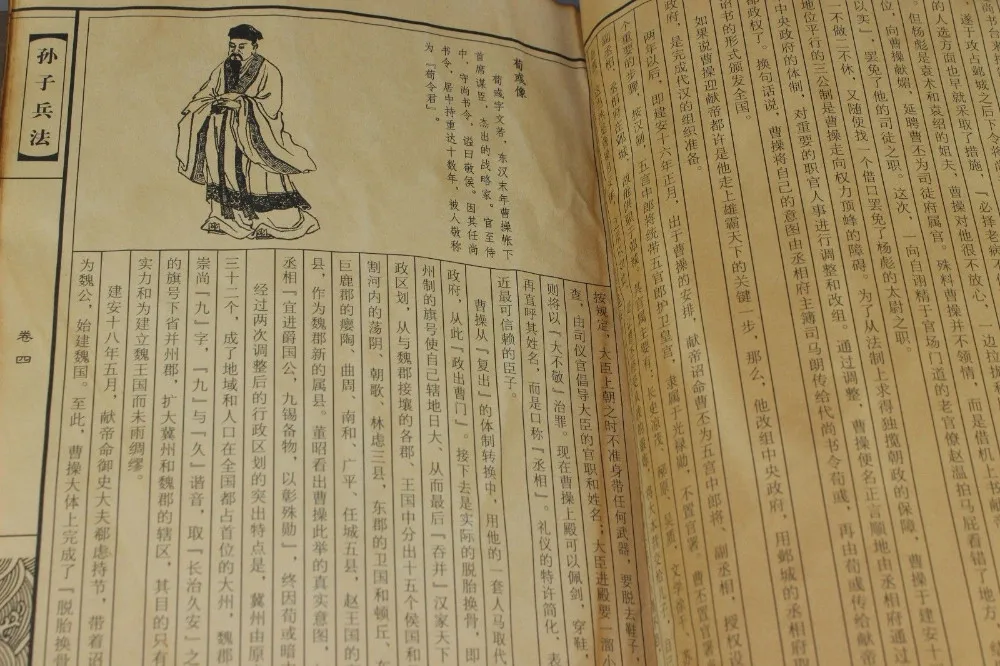 遂于攻占邺城之后下令
的人选方面也早就采取了措施，“必择老
但杨彪是袁术和袁绍的姐夫，曹操对他很不放心，一边拉拢
位，向曹操献媚，延聘曹丕为司徒府属官。殊料曹操并不领情，而是借机上
以实”，罢免了他的司徒之职。这次，向自诩精于官场门道的老官僚赵温拍马屁看错了地方，
一不做二不休，又随便找一个借口罢免了杨彪的太尉之职。
地位平行的三公制是曹操走向权力顶峰的障碍，为了从法制上求得独揽朝政的保障，曹操于建安十
中央政府的体制，对重要的职官人事进行调整和改组。通过调整，曹操便名正言顺地由丞相府通过
都政权了。换句话说，曹操将自己的意图由丞相府主簿司马朗传给代尚书令荀彧，再由荀彧传给献
诏书的形式颁发全国。
如果说曹操迎献帝都许是他走上雄霸天下的关键一步，那么，他改组中央政府，用邺城的丞相府
政府，是完成代汉的组织准备。
两年以后，即建安十六年正月，出于曹操的安排，献帝诏命曹丕为五官中郎将、副丞相，授权设
个重要的步骤。按汉制，五官中郎将统帅五官郎护卫皇宫，隶属于光禄勋，不置官署，
荀彧像
荀彧字文若，东汉末年曹操帐下
首席谋臣，杰出的战略家。官至侍
中，守尚书令，谥曰敬侯。因其任尚
书令，居中持重达十数年，被人敬称
为“荀令君”。
按规定，大臣上朝之时不准身带任何武器，要脱去鞋子，
查，由司仪官倡导大臣的官职和姓名；大臣进殿要一溜小
则将以“大不敬”治罪。现在曹操上殿可以佩剑，穿鞋，
再直呼其姓名，而是口称“丞相”。礼仪的特许简化，表
近最可信赖的臣子。
曹操从“复出”的体制转换中，用他的一套人马取代
政府，从此“政出曹门”。接下去是实际的脱胎换骨，即
州制的旗号使自己辖地日大、从而最后“吞并”汉家天下
政区划，从与魏郡接壤的各郡、王国中分出十五个侯国和
割河内的荡阴、朝歌、林虑三县，东郡的卫国和顿丘、东
巨鹿郡的瘿陶、曲周、南和、广平、任城五县，赵王国的
县，作为魏郡新的属县。董昭看出曹操此举的真实意图，
丞相“宜进爵国公，九锡备物，以彰殊勋”，终因荀彧暗
经过两次调整后的行政区划的突出特点是，冀州由原
三十二个，成了地域和人口在全国都占首位的大州，魏郡
崇尚“九”字，“九”与“久”谐音，取“长治久安”之
的旗号下省并州郡，扩大冀州和魏郡的辖区，其目的只有
实力和为建立魏王国而未雨绸缪。
建安十八年五月，献帝命御史大夫郗虑持节，带着诏
为魏公，始建魏国。至此，曹操大体上完成了“脱胎换骨
【孙子兵法】
卷四